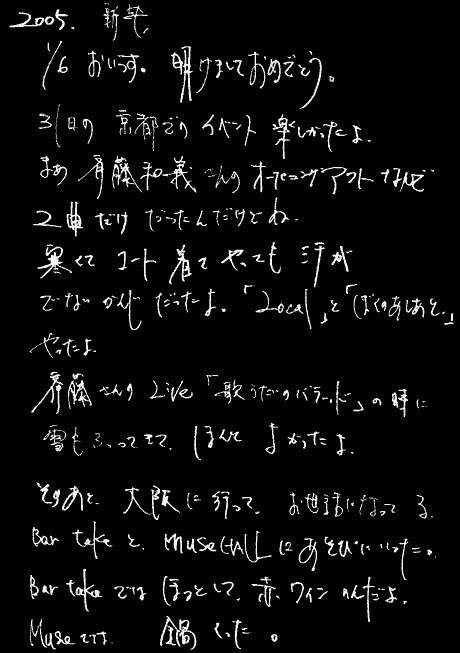 2005. 新年
1/6 おいっす。明けましておめでとう。
31日の京都でのイベント楽しかったよ。
まあ 斉藤和義さんのオープニングアクトなんで
2曲だけだったんだけどね。
寒くてコート着てやっても汗が
でないかんじだったよ。「Local」と「ぼくのあしあと」
やったよ。
斉藤さんのLive「歌うたいのバラッド」の時に
雪もふってきて、ほんとよかったよ。
そのあと、大阪に行って、お世話になってる
Bar takeと、Muse HALLにあそびにいった。
Bar takeではほっとして、赤ワインのんだよ。
Museでは、鍋くった。